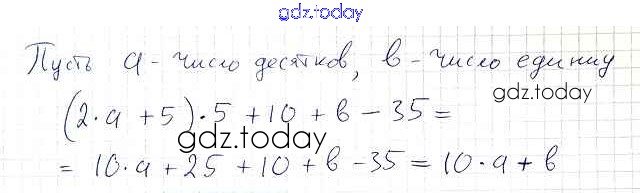 gdz.today
Пусть a - число десятков, b - число единиц
gdz.today
(2·a + 5)·5 + 10 + b - 35 =
gdz.today
= 10·a + 25 + 10 + b - 35 = 10·a + b